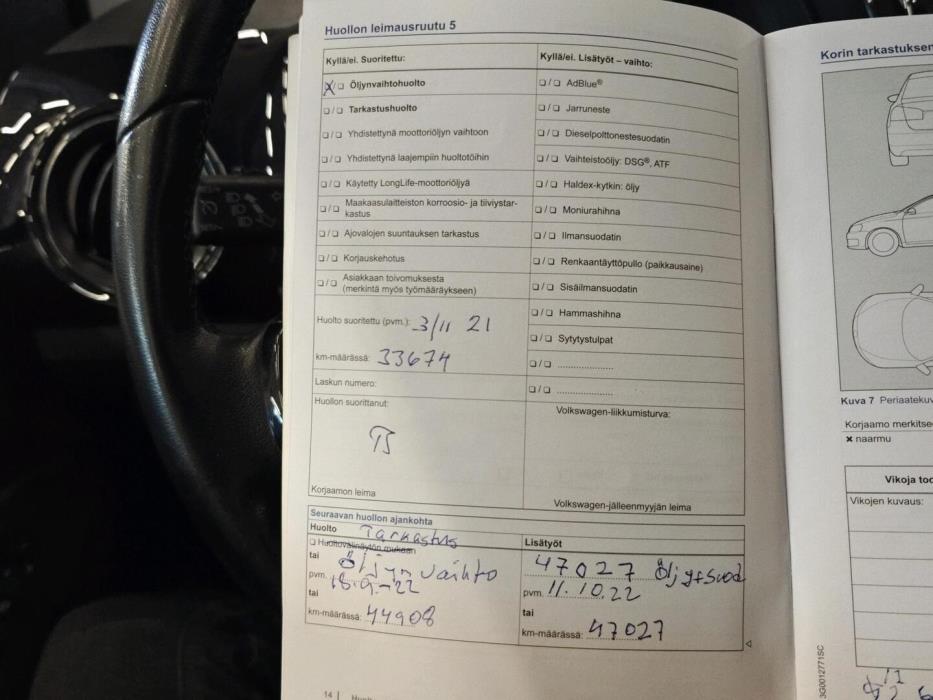 Huollon leimausruutu 5
Kyllä/ei. Suoritettu:
X/❑ Öljynvaihtohuolto
❑/❑ Tarkastushuolto
❑/❑ Yhdistettynä moottoriöljyn vaihtoon
❑/❑ Yhdistettynä laajempiin huoltotöihin
❑/❑ Käytetty LongLife-moottoriöljyä
❑/❑ Maakaasulaitteiston korroosio- ja tiiviystar-
kastus
❑/❑ Ajovalojen suuntauksen tarkastus
❑/❑ Korjauskehotus
❑/❑ Asiakkaan toivomuksesta
(merkintä myös työmääräykseen)
Huolto suoritettu (pvm.): 3/11 21
km-määrässä: 33674
Laskun numero:
Huollon suorittanut:
TS
Korjaamon leima
Kyllä/ei. Lisätyöt – vaihto:
❑/❑ AdBlue®
❑/❑ Jarruneste
❑/❑ Dieselpolttonestesuodatin
❑/❑ Vaihteistoöljy: DSG®, ATF
❑/❑ Haldex-kytkin: öljy
❑/❑ Moniurahihna
❑/❑ Ilmansuodatin
❑/❑ Renkaantäyttöpullo (paikkausaine)
❑/❑ Sisäilmansuodatin
❑/❑ Hammashihna
❑/❑ Sytytystulpat
❑/❑ ....................
❑/❑ ....................
Volkswagen-liikkumisturva:
Volkswagen-jälleenmyyjän leima
Seuraavan huollon ajankohta
Huolto Tarkastus
❑ Huoltovälinäytön mukaan
tai Öljyn vaihto
pvm. 18.9.-22
tai
km-määrässä: 44908
Lisätyöt
47027 Öljy+Suod
pvm. 11.10.22
tai
km-määrässä: 47027
14 |
Korin tarkastuksen
Kuva 7 Periaatekuv
Korjaamo merkitse
× naarmu
Vikoja too
Vikojen kuvaus:
3G0012771SC